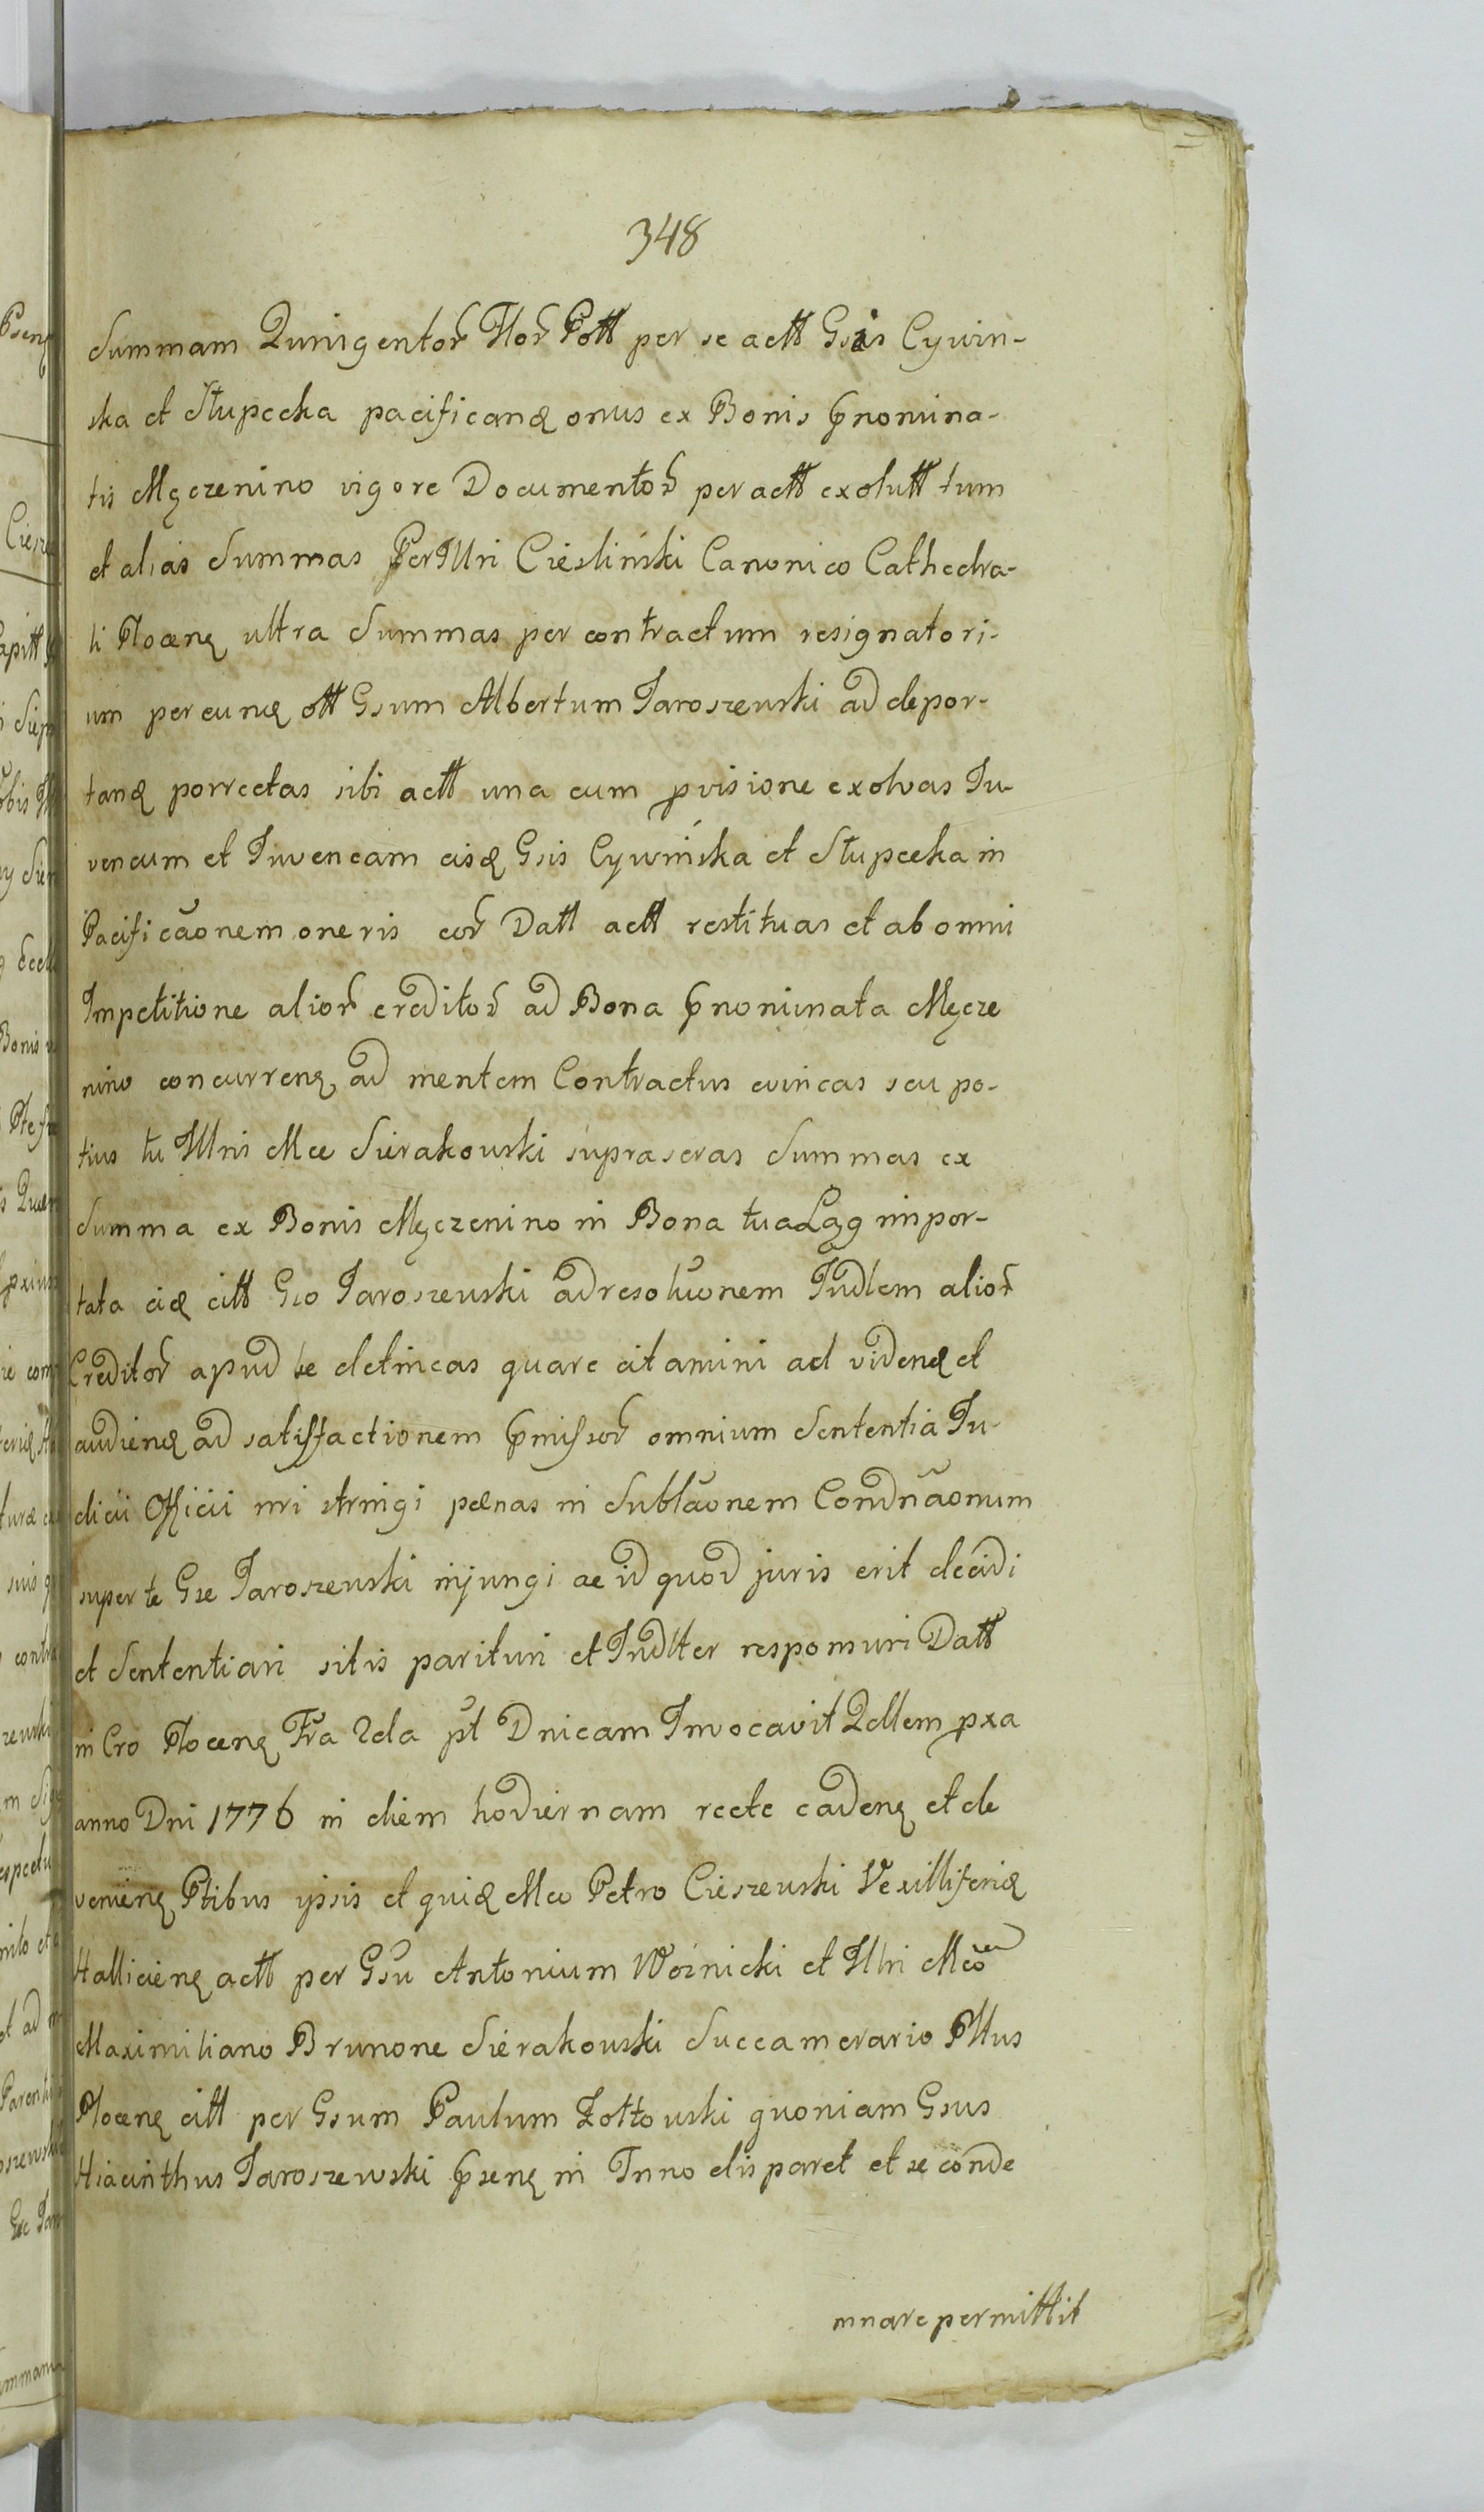 348
Summam Quingentor Flor Poll per se actt Gsis Cywin-
ska et Słupecka pacificandę onus ex Bonis pnomina-
tis Męczenino vigore Documentor per actt exolutt tum
et alias Summas PerIllri Ciesliński Canonico Cathedra-
li Plocenę ultra Summas per contractum resignatori-
um per eunę ctt Gsum Albertum Jaroszewski ad depor-
tandę porrectas sibi actt una cum pvisione exolvas Ju-
vencum et Juvencam eisdę Gsis Cywińska et Słupecka in
Pacificãonem oneris eor Datt actt restituas et ab omni
Impetitione alior creditor ad Bona pnominata Męcze
nino concurrenę ad mentem Contractus evincas seu po-
tius tu Illris Mce Sierakowski suprascras Summas ex
Summa ex Bonis Męczenino in Bona tua Łąg impor-
tata eidę citt Gso Jaroszewski ad resoluõnem Judlem alior
Creditor apud te detineas quare citamini ad videndę et
audiendę ad satisfactionem pmissor omnium Sententia Ju-
dicii Officii nri stringi pænas in Sublãonem Condnãonum
super te Gse Jaroszewski injungi ac id quod juris erit decidi
et Sententiari sitis parituri et Judlter responsuri Datt
in Cro Plocenę Fra 2da pt Dnicam Invocavit Qdllem pxa
anno Dni 1776 in diem hodiernam recte cadenę et de
venienę Ptibus ipsis et quidę Mco Petro Cieszewski Vexilliferidę
Halliciensę actt per Gsũ Antonium Woźnicki et Illri Mcõ
Maximiliano Brunone Sierakowski Succamerario Pttus
Plocenę citt per Gsum Paulum Żółtowski quoniam Gsus
Hiacinthus Jaroszewski psenę in Tnno disparet et se conde
mnare permittit